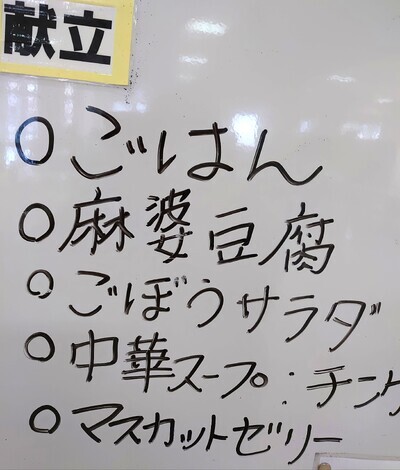 献立
○ごはん
○麻婆豆腐
○ごぼうサラダ
○中華スープ:チンゲ
○マスカットゼリー